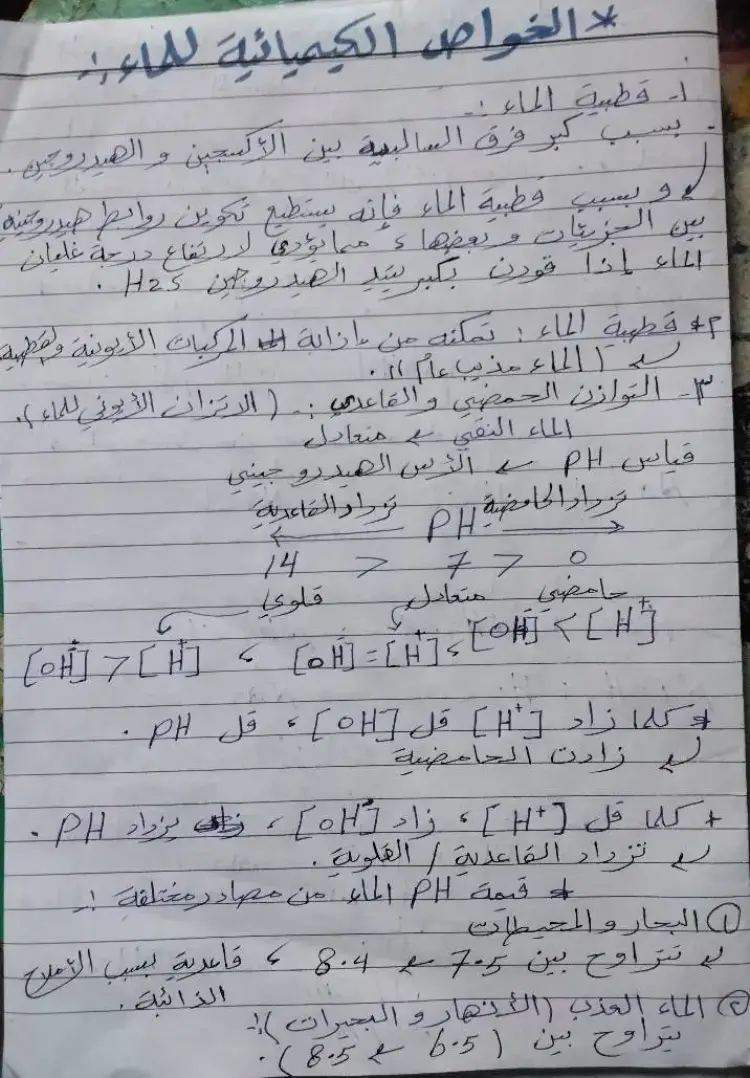 * الخواص الكيميائية للماء :-
١- قطبية الماء :-
بسبب كبر فرق السالبية بين الأكسجين و الهيدروجين .
و بسبب قطبية الماء فإنه يستطيع تكوين روابط هيدروجينية
بين الجزيئات و بعضها ، مما يؤدي لارتفاع درجة غليان
الماء إذا قورن بكبريتيد الهيدروجين H2S .
٢* قطبية الماء : تمكنه من إذابة المركبات الأيونية والقطبية
( الماء مذيب عام ) .
٣- التوازن الحمضي والقاعدي :- ( الاتزان الأيوني للماء ) .
الماء النقي ← متعادل
قياس PH ← الأس الهيدروجيني
تزداد الحامضية تزداد القاعدية
← PH →
14 > 7 > 0
حامضي متعادل قلوي
[OH] < [H+]
[OH-] > [H+] ، [OH-] = [H+] ،
* كلما زاد [H+] قل [OH] ، قل PH .
زادت الحامضية
* كلما قل [H+] ، زاد [OH-] ، يزداد PH .
تزداد القاعدية / القلوية .
* قيمة PH الماء من مصادر مختلفة :-
① البحار و المحيطات
تتراوح بين 7.5 ← 8.4 ، قاعدية بسبب الأملاح
الذائبة .
② الماء العذب ( الأنهار و البحيرات ) :-
يتراوح بين ( 6.5 ← 8.5 ) .